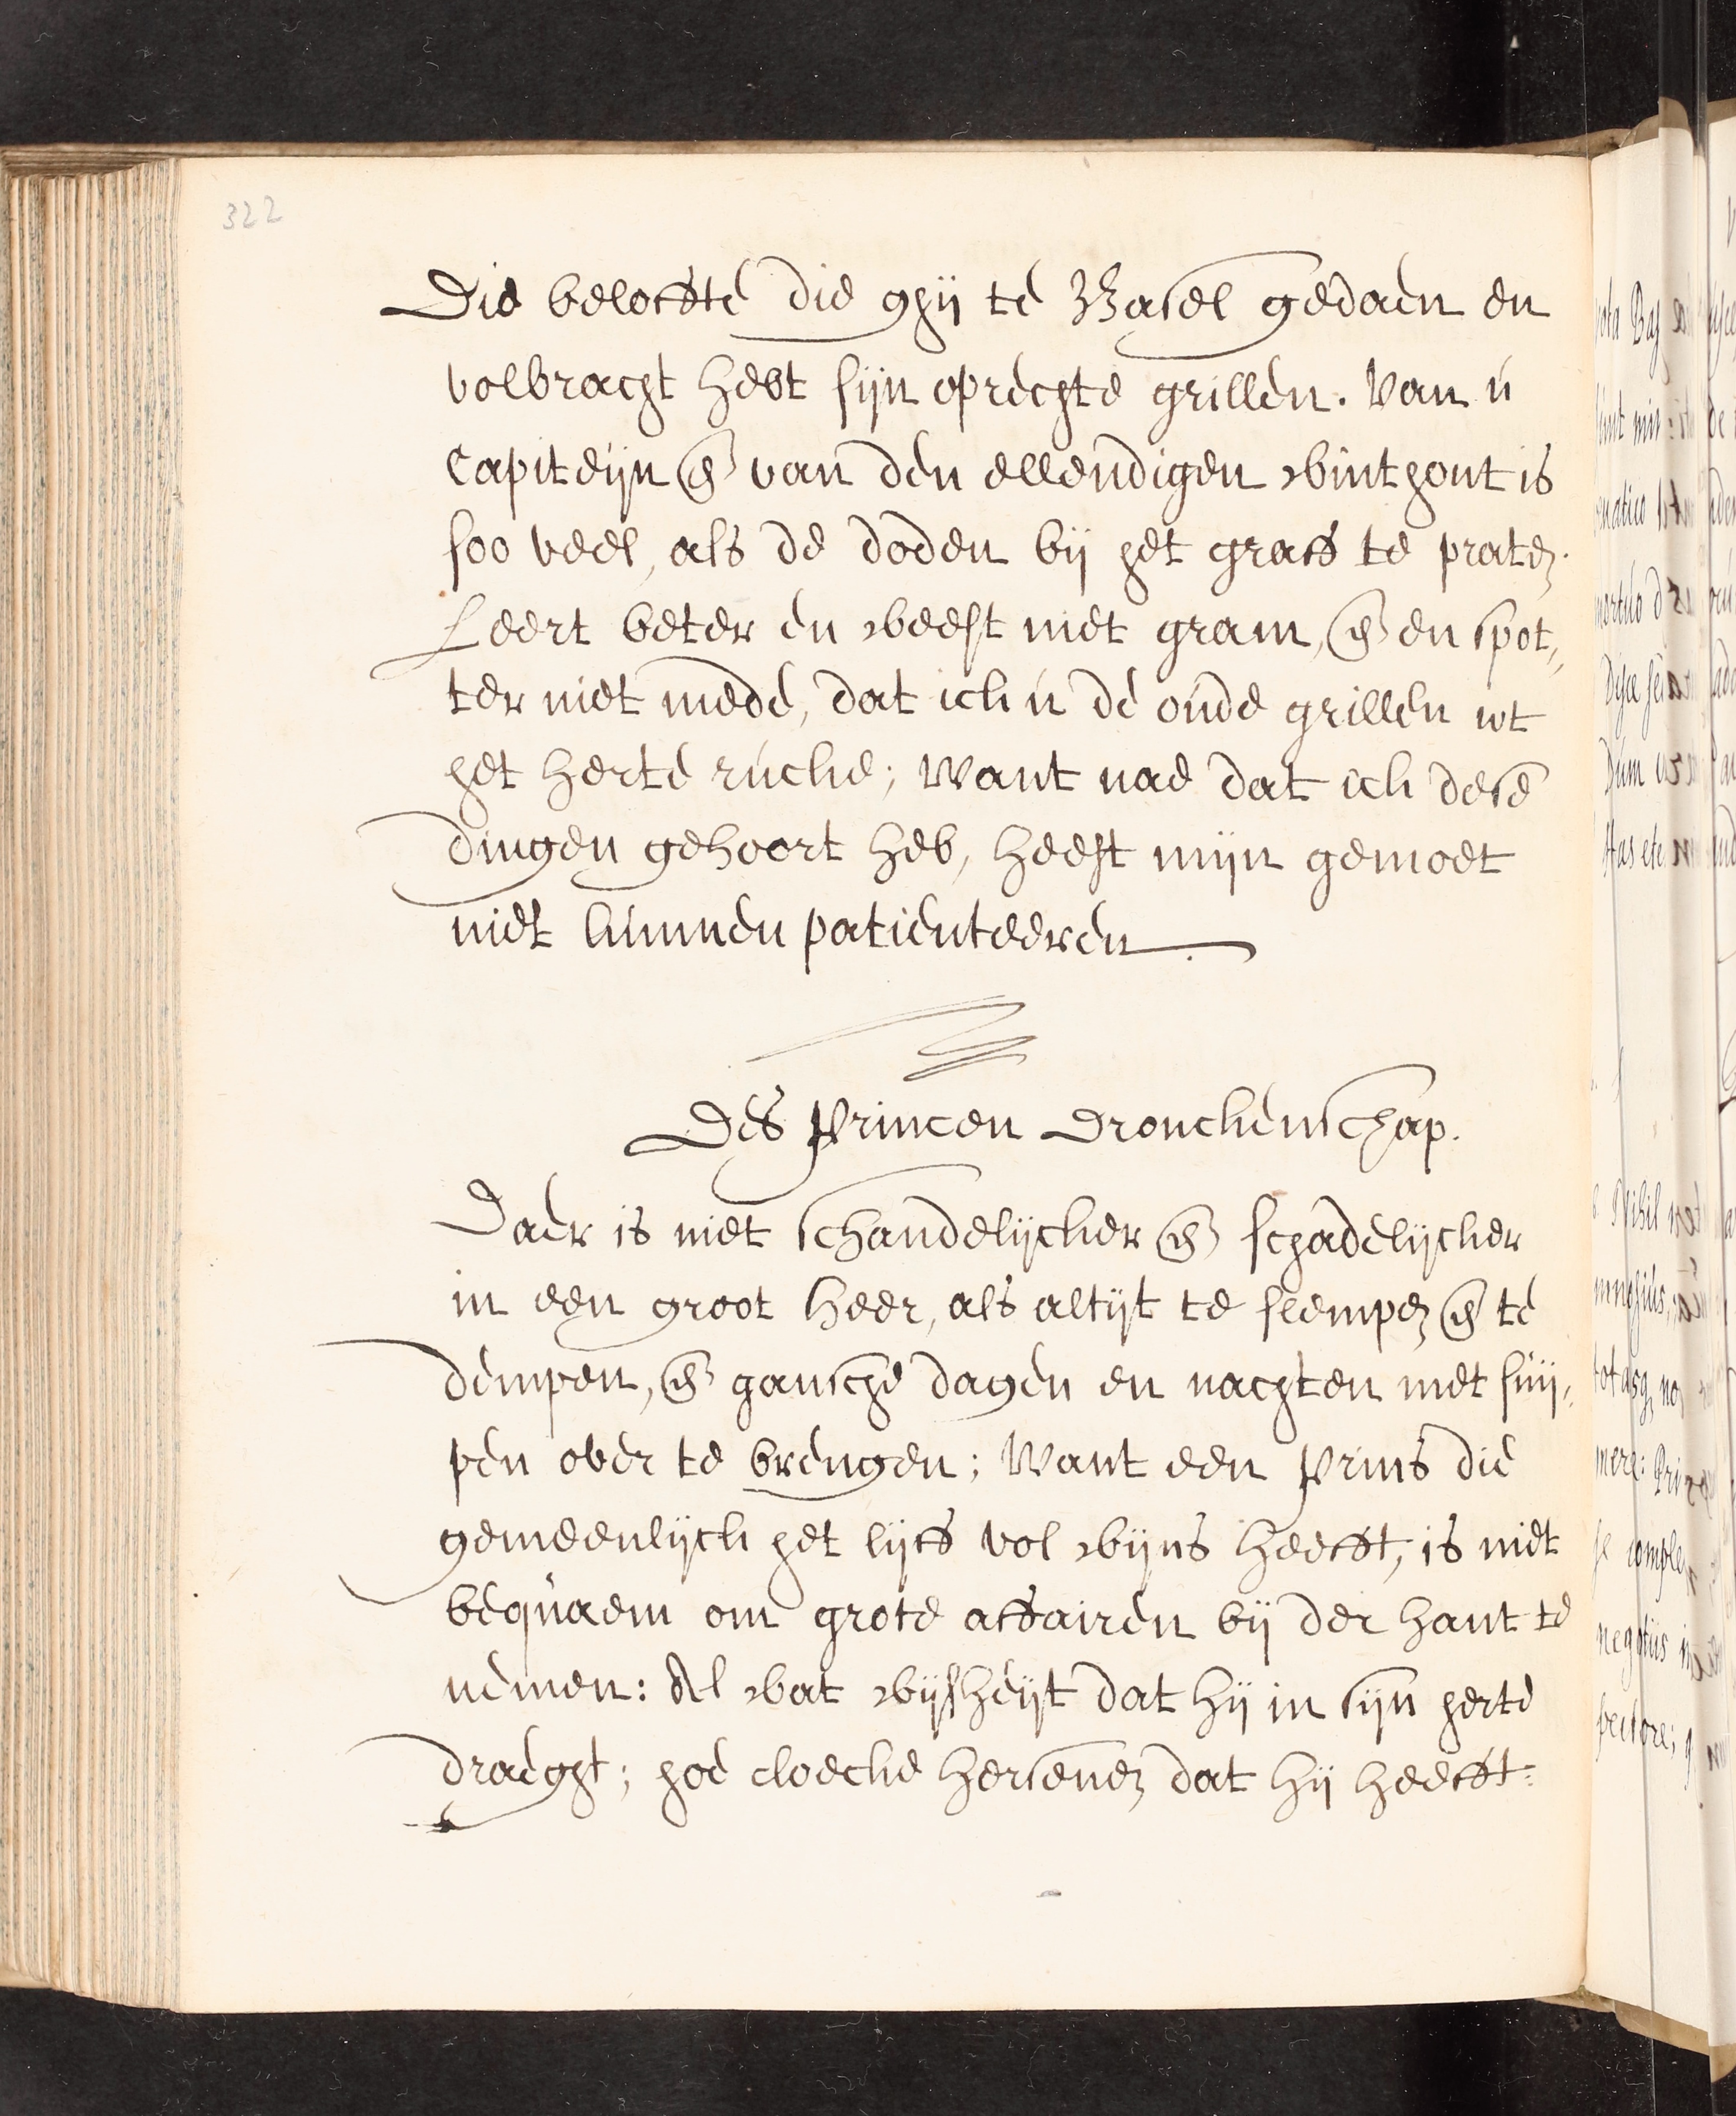 322
Die beloffte die ghij te Basel gedaen en
volbracht hebt sijn oprechte grillen. Van u
Capiteijn en van den ellendigen winthont is
soo veel, als de doden bij het graff te praten.
Leert beter en weest niet gram, en en spot,,
ter niet mede, dat ick u de oude grillen wt
het herte rucke; want nae dat ick dese
dingen gehoort heb, heeft mijn gemoet
niet kunnen patienteeren.
Des Princen Dronckenschap.
Daer is niet schandelijcker en schadelijcker
in een groot heer, als altijt te slempen en te
dempen, en gansche dagen en nachten met suij,
pen over te brengen; want een Prins die
gemeenlijck het lijff vol wijns heefft, is niet
bequaem om grote affairen bij der hant te
nemen: Al wat wijsheijt dat hij in sijn herte
draeght; hoe cloecke hersenen dat hij heefft: